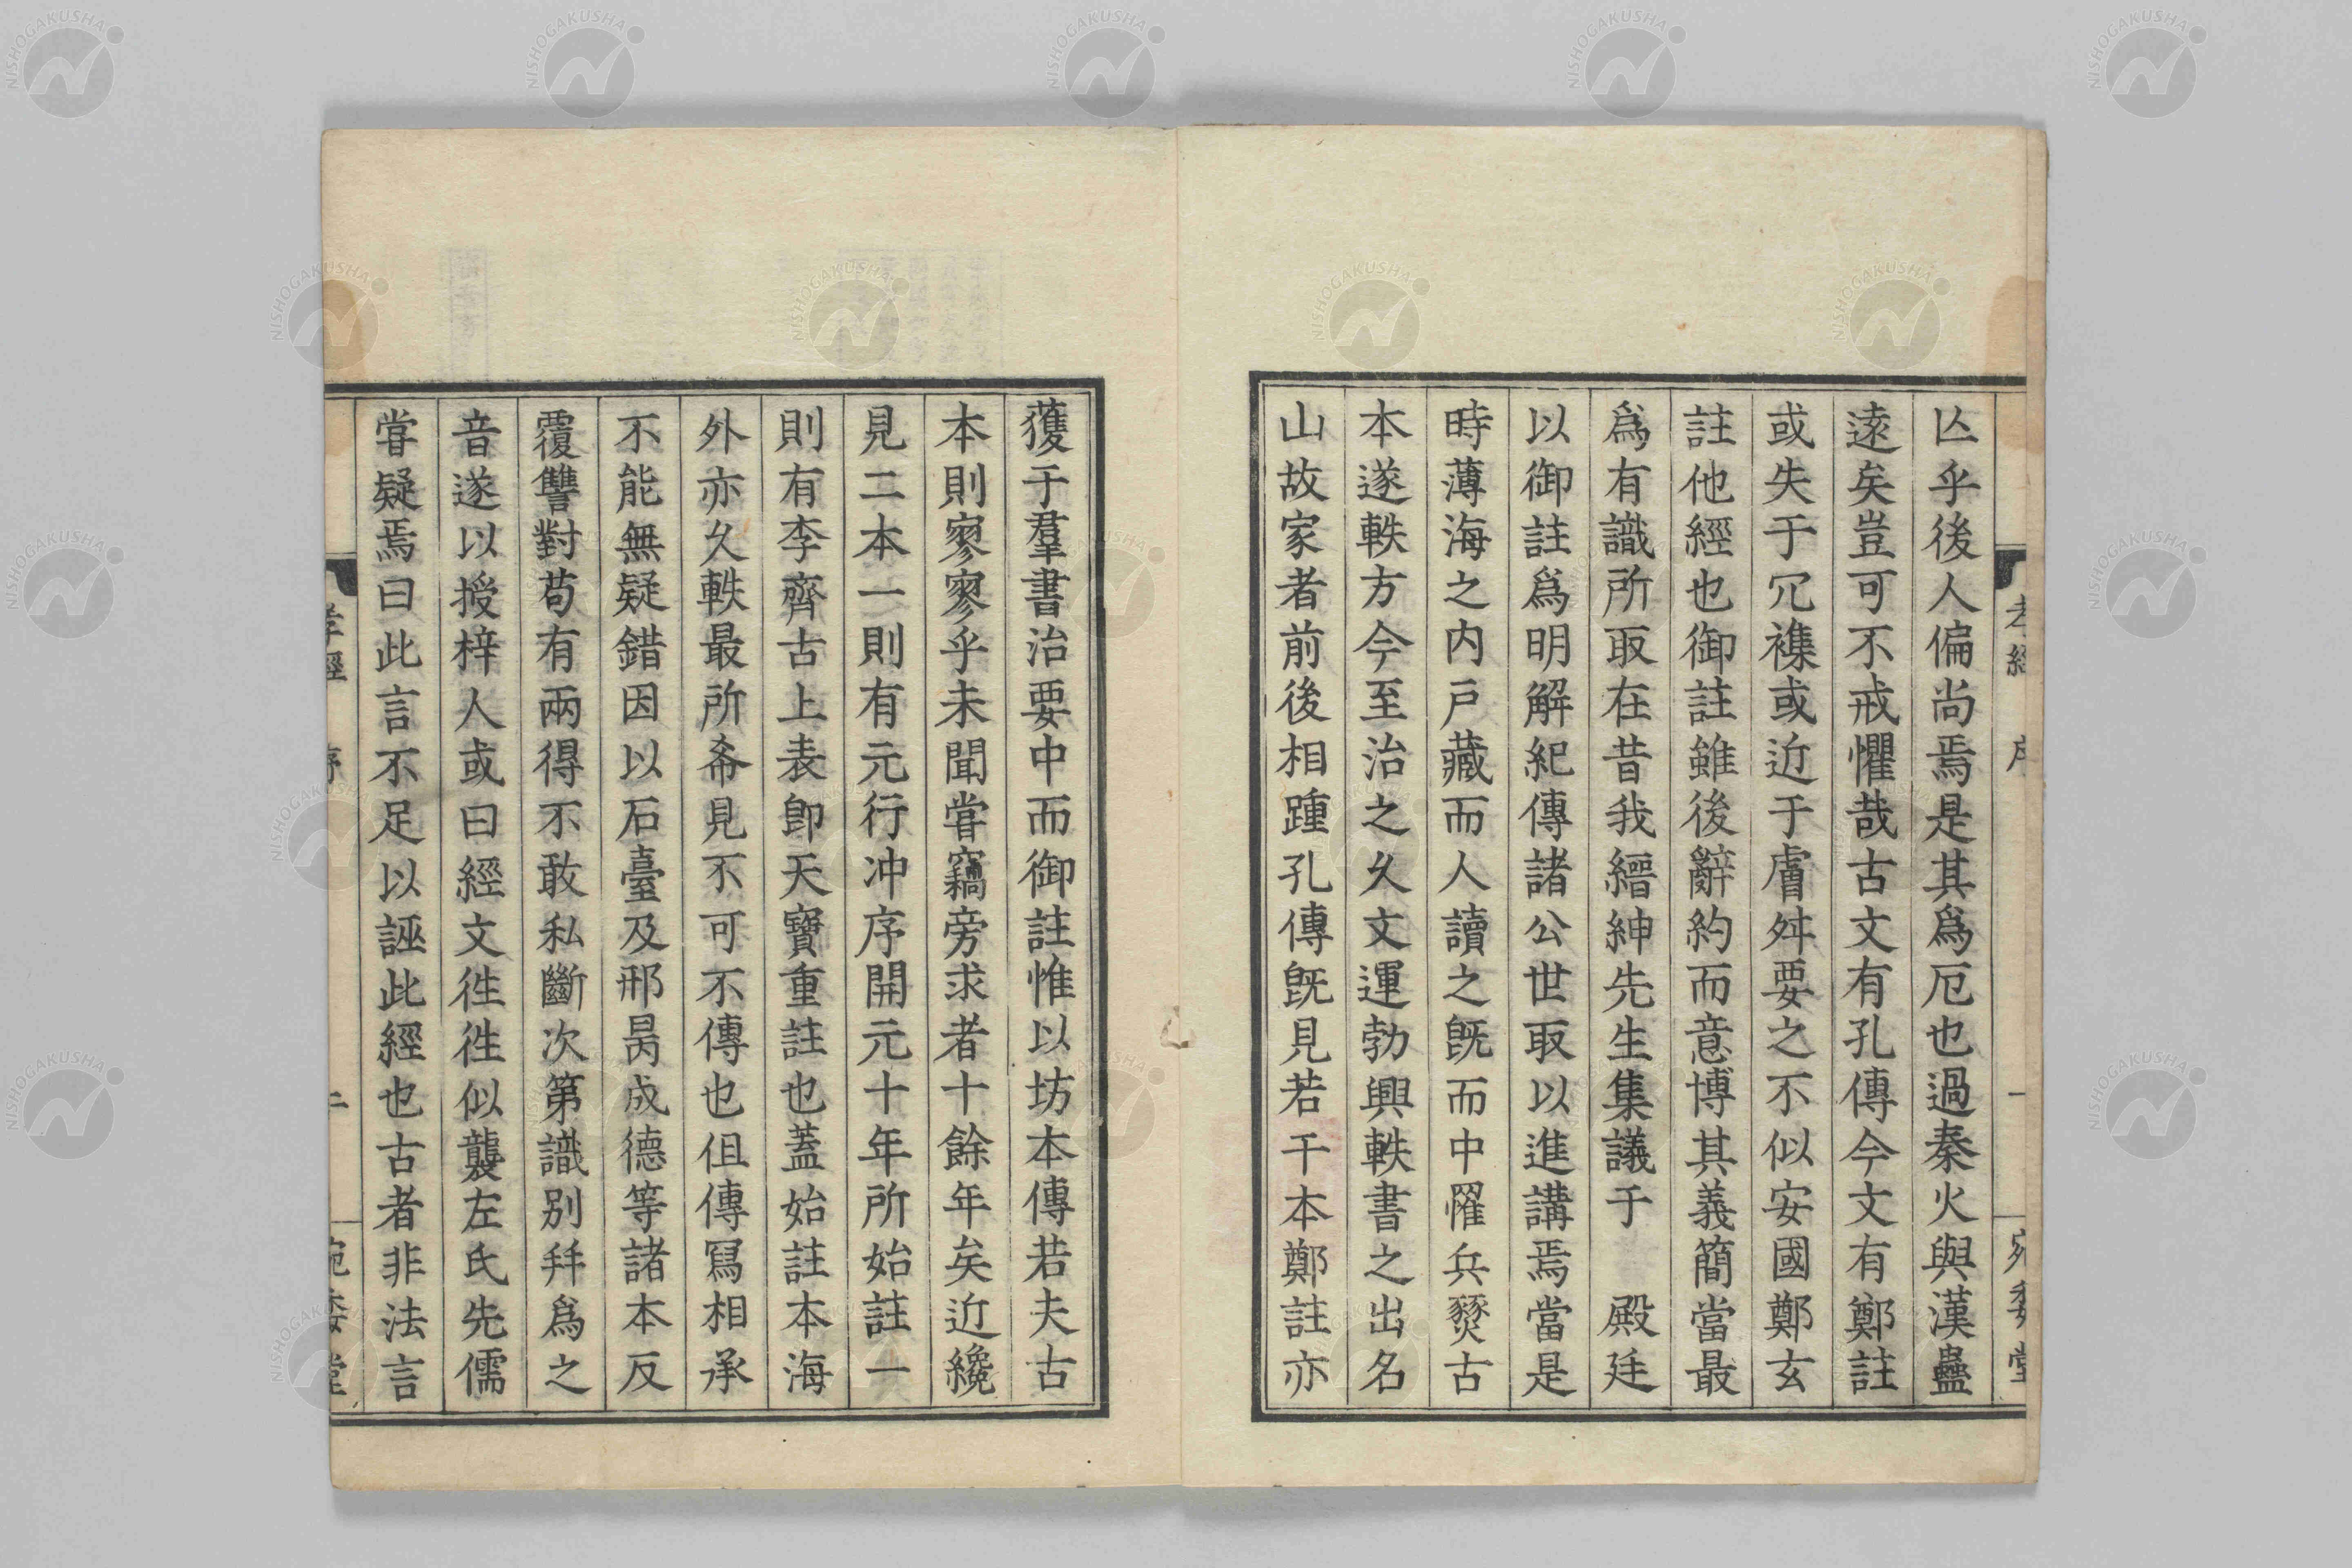 亾乎後人偏尚焉是其爲厄也過秦火與漢蠱
逺矣豈可不戒懼哉古文有孔傳今文有鄭註
或失于冗襍或近于膚舛要之不似安國鄭玄
註他經也御註雖後辭約而意博其義簡當最
爲有識所取在昔我縉紳先生集議于 殿廷
以御註爲明解紀傳諸公世取以進講焉當是
時薄海之内戸藏而人讀之既而中罹兵燹古
本遂軼方今至治之久文運勃興軼書之出名
山故家者前後相踵孔傳既見若干本鄭註亦
孝經 序 一 宛委堂
獲于羣書治要中而御註惟以坊本傳若夫古
本則寥寥乎未聞甞竊旁求者十餘年矣近纔
見二本一則有元行冲序開元十年所始註一
則有李齊古上表卽天寶重註也蓋始註本海
外亦久軼最所希見不可不傳也但傳冩相承
不能無疑錯因以石臺及邢昺成德等諸本反
覆讐對苟有兩得不敢私斷次第識别拜爲之
音遂以授梓人或曰經文徃徃似襲左氏先儒
甞疑焉曰此言不足以誣此經也古者非法言
孝經 序 二 宛委堂
NISHOGAKUSHA